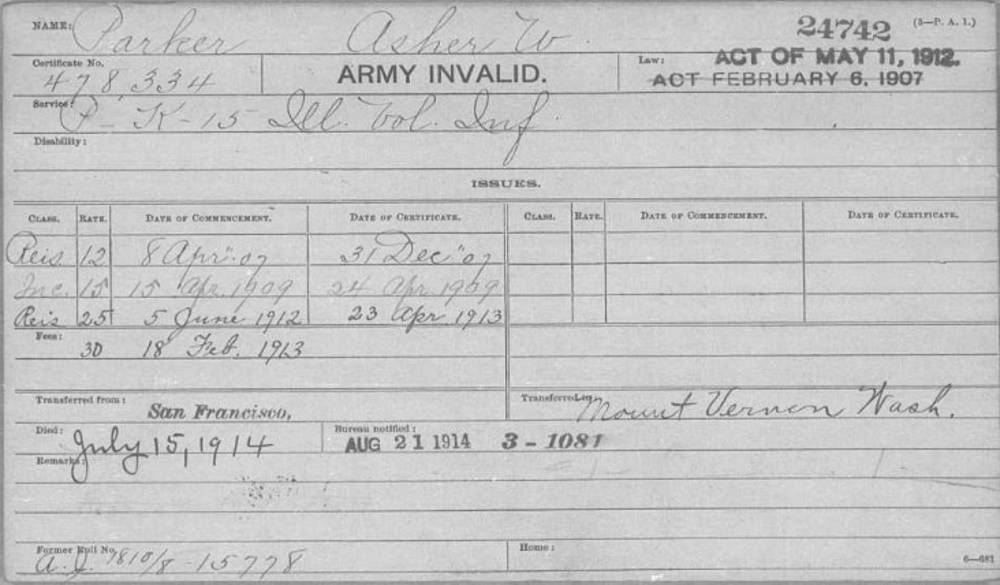 NAME: Parker Asher W. 24742 (3-P. A. 1.)
Certificate No. 478,334 ARMY INVALID. Law: ACT OF MAY 11, 1912.
ACT FEBRUARY 6, 1907
Service: P- K-15 Ill. Vol. Inf.
Disability:
ISSUES.
CLASS. RATE. DATE OF COMMENCEMENT. DATE OF CERTIFICATE. CLASS. RATE. DATE OF COMMENCEMENT. DATE OF CERTIFICATE.
Reis 12 8 Apr. 07 31 Dec. 07
Inc. 15 15 Apr. 1909 24 Apr. 1909
Reis 25 5 June 1912 23 Apr 1913
Fees: 30 18 Feb. 1913
Transferred from: San Francisco, Transferred to: Mount Vernon Wash.
Died: July 15, 1914 Bureau notified: AUG 21 1914 3-1081
Remarks:
Former Roll No. A.J. 7810/8-15778 Home: 6-681